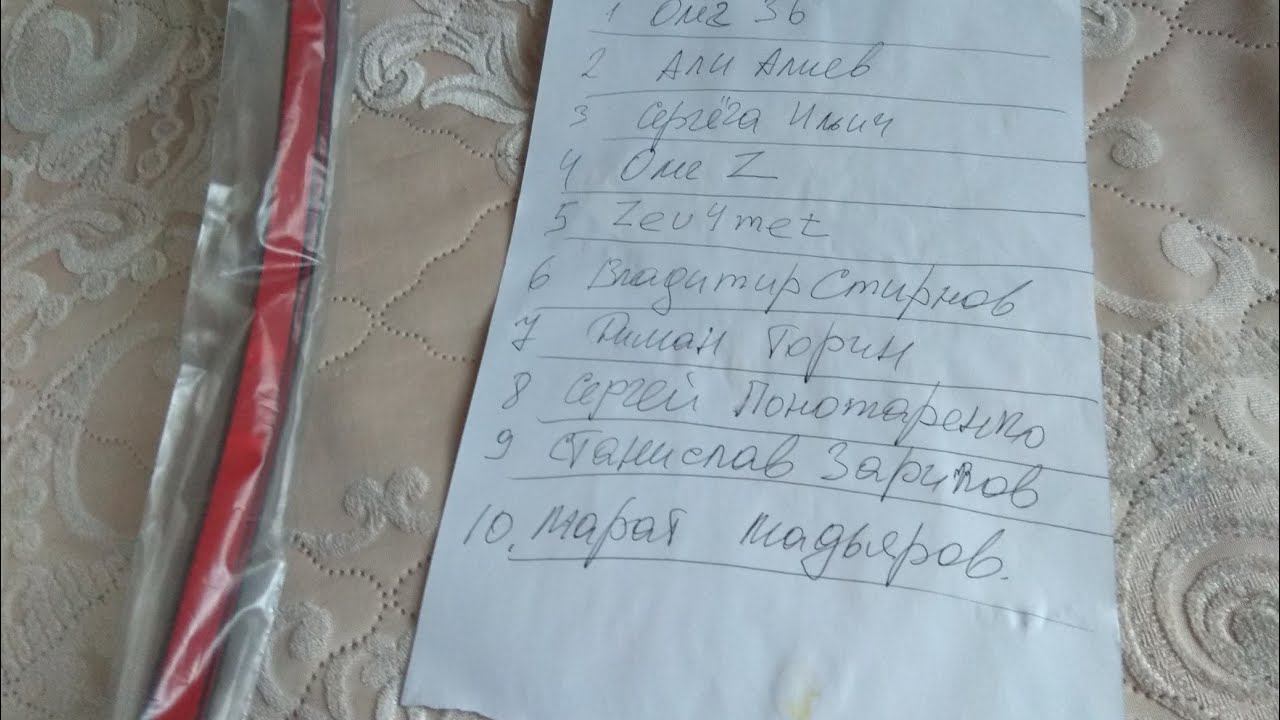 1 Олег 36
2 Али Алиев
3 Сергёга Ильич
4 One Z
5 Zev4met
6 Владимир Смирнов
7 Риман Горин
8 Сергей Понотаренко
9 Станислав Зарипов
10. Марат Мадьяров.